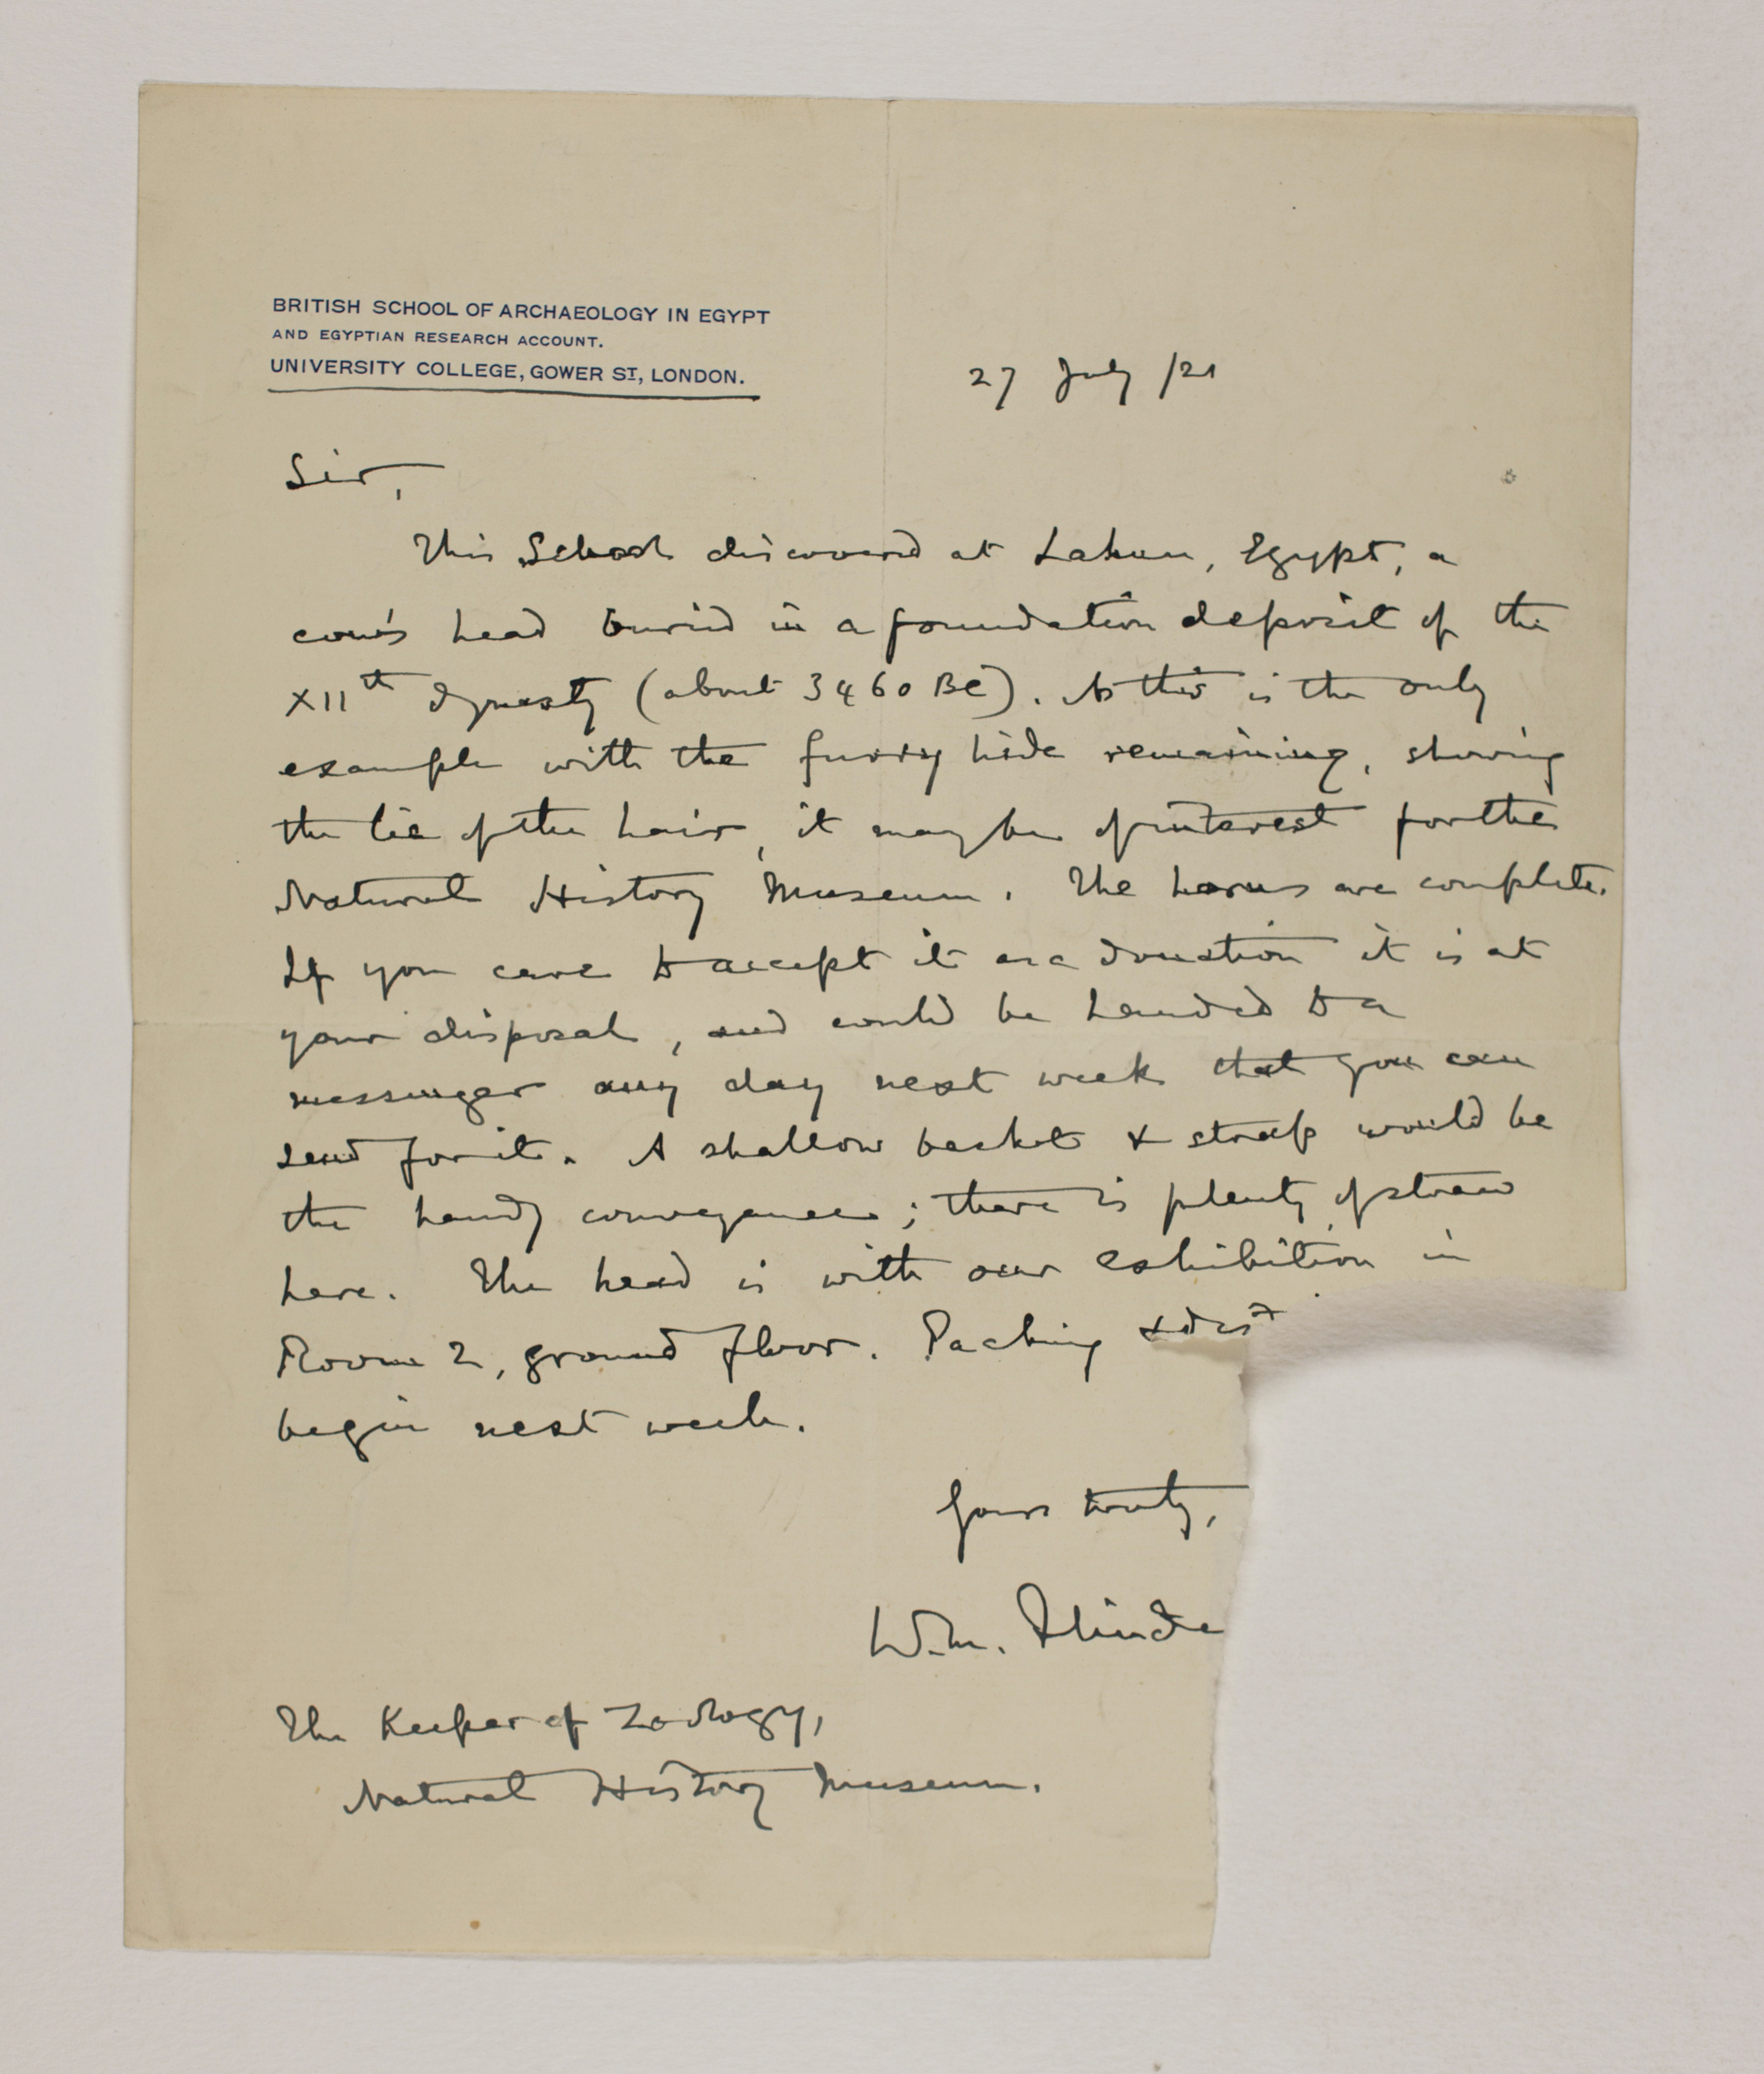 BRITISH SCHOOL OF ARCHAEOLOGY IN EGYPT
AND EGYPTIAN RESEARCH ACCOUNT.
UNIVERSITY COLLEGE, GOWER ST, LONDON.
27 July /21
Sir,
This School discovered at Lahun, Egypt, a
cow's head buried in a foundation deposit of the
XIIth dynasty (about 3460 BC). As this is the only
example with the furry hide remaining, showing
the lie of the hair, it may be of interest for the
Natural History Museum. The horns are complete.
If you care to accept it as a donation it is at
your disposal, and could be handed to a
messenger any day next week that you can
send for it. A shallow basket & strap would be
the handy conveyance; there is plenty of straw
here. The head is with our exhibition in
Room 2, ground floor. Packing & dist
begin next week.
Yours truly,
W.M. Flinde
The Keeper of Zoology,
Natural History Museum.